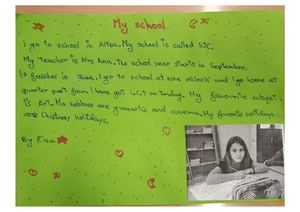 My school
I go to school in Altea. My school is called SJC.
My teacher is Mrs Ana. The school year starts in September.
It finishes in June. I go to school at nine o'clock and I go home at
quarter past four. I have got on My favourite subject
is Art. Ma hobbies are gimnastic and cinema. My favorite holidays
are Christmas holidays.
By Elsa